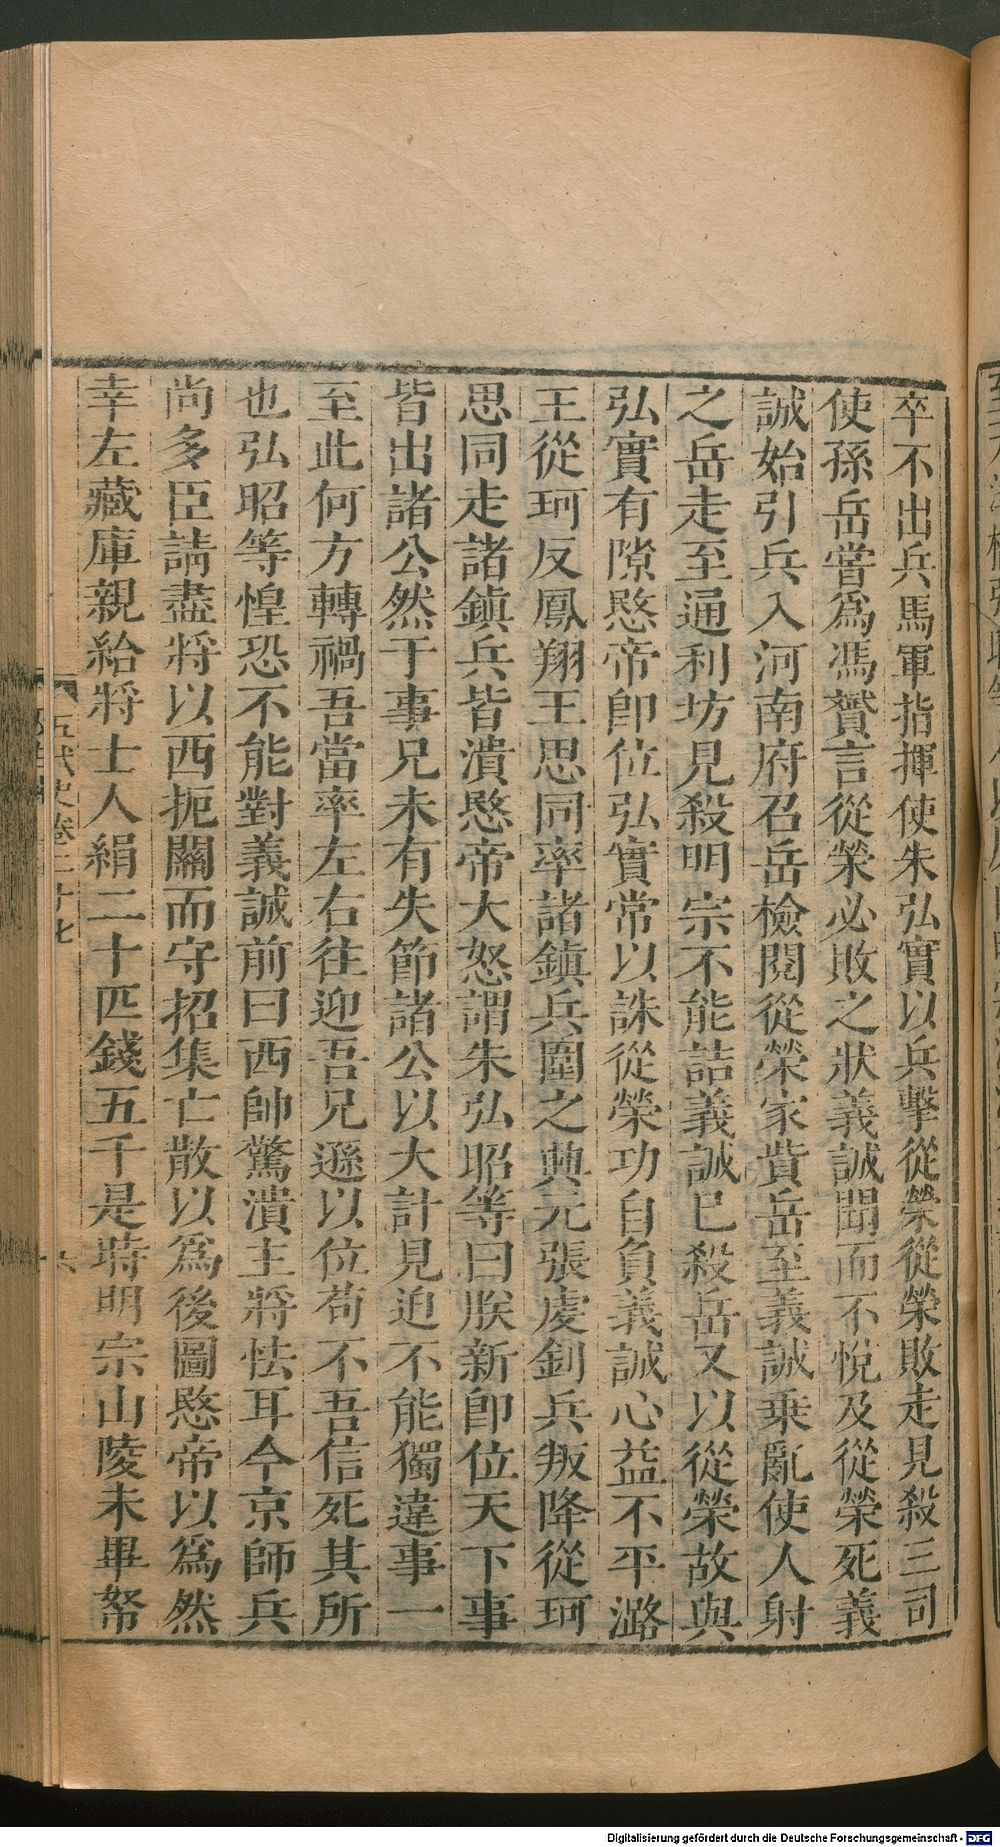 卒不出兵馬軍指揮使朱弘實以兵擊從榮從榮敗走見殺三司
使孫岳嘗爲馮贇言從榮必敗之狀義誠聞而不悅及從榮死義
誠始引兵入河南府召岳檢閱從榮家貲岳至義誠乗亂使人射
之岳走至通利坊見殺明宗不能詰義誠已殺岳又以從榮故與
弘實有隙愍帝即位弘實常以誅從榮功自負義誠心益不平潞
王從珂反鳳翔王思同率諸鎮兵圍之興元張虔釗兵叛降從珂
思同走諸鎮兵皆潰愍帝大怒謂朱弘昭等曰朕新即位天下事
皆出諸公然于事兄未有失節諸公以大計見迫不能獨違事一
至此何方轉禍吾當率左右往迎吾兄遜以位苟不吾信死其所
也弘昭等惶恐不能對義誠前曰西師驚潰主將怯耳今京師兵
尚多臣請盡將以西扼關而守招集亡散以爲後圖愍帝以爲然
幸左藏庫親給將士人絹二十匹錢五千是時明宗山陵未畢帑
五代史卷二十七
六
Digitalisierung gefördert durch die Deutsche Forschungsgemeinschaft - DFG